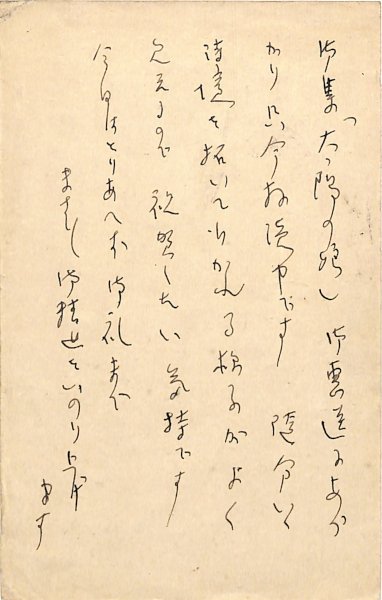 御集「太陽の娘」御恵送にあづ
かり只今拝読中です 随分いゝ
詩境を拓いてゐかれる様子がよく
見えるので 祝賀したい気持です
今日はとりあへず御礼まで
ますます御精進をいのり上げ
ます